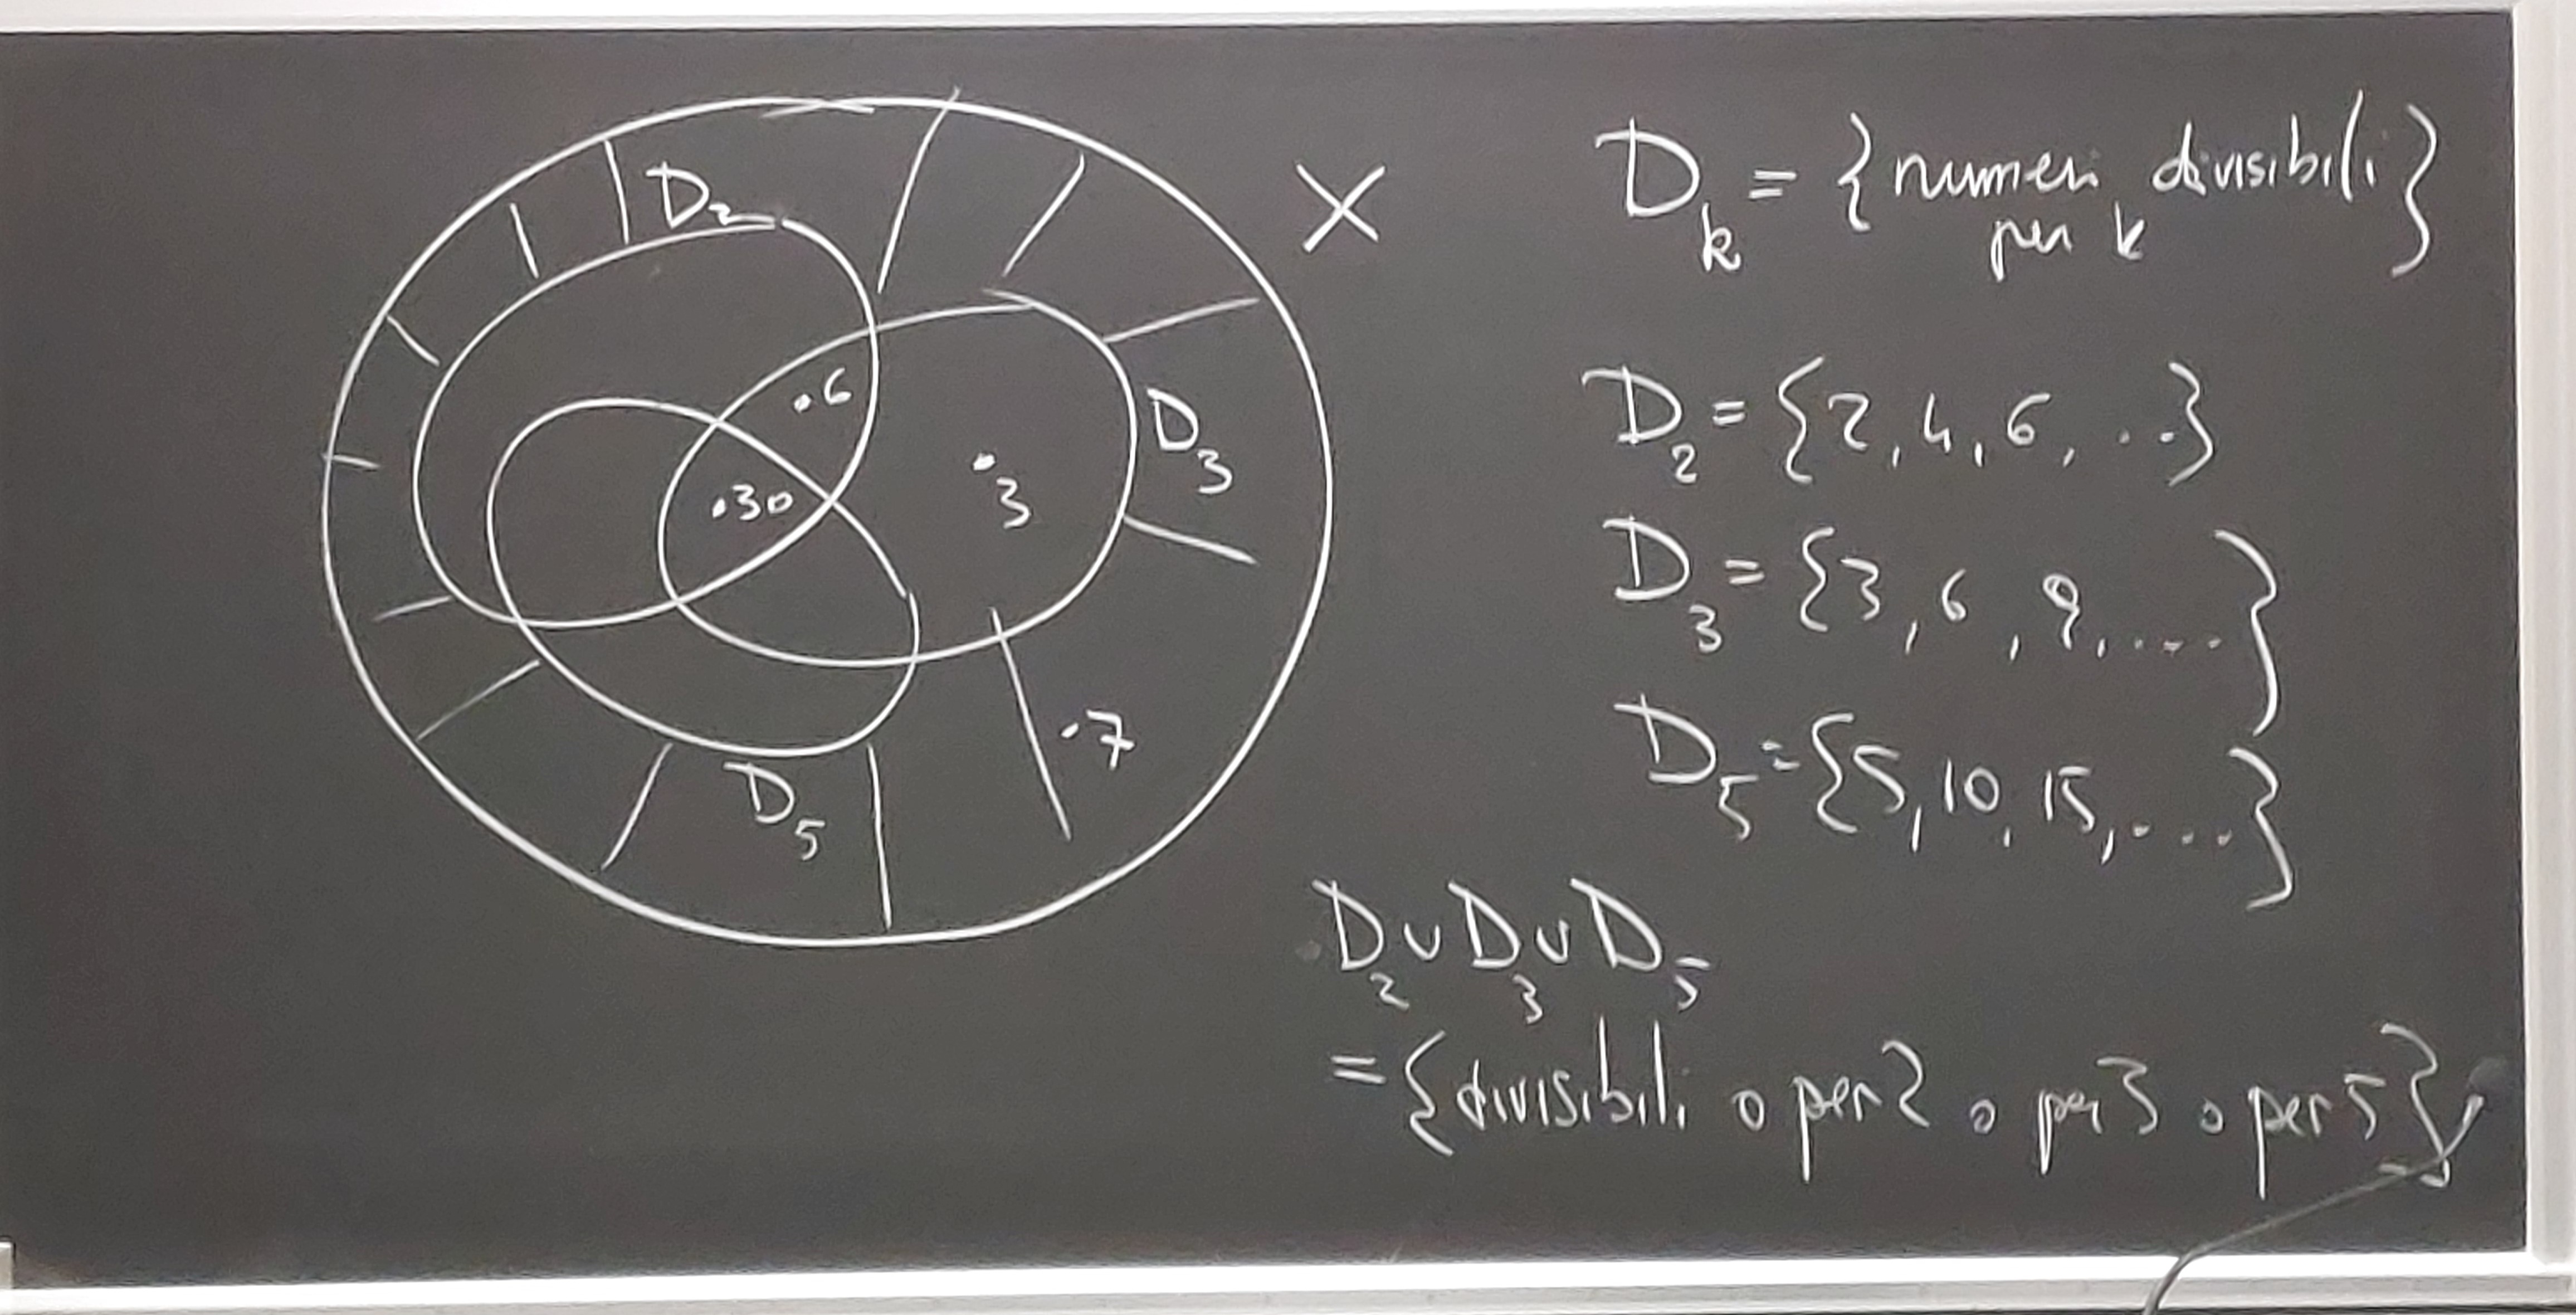 D₂
X
.6
.30
. 3
D₃
.7
D₅
Dₖ = {numeri divisibili
per k}
D₂ = {2, 4, 6, ...}
D₃ = {3, 6, 9, ....}
D₅ = {5, 10, 15, ....}
D₂ ∪ D₃ ∪ D₅
= {divisibili o per 2 o per 3 o per 5}